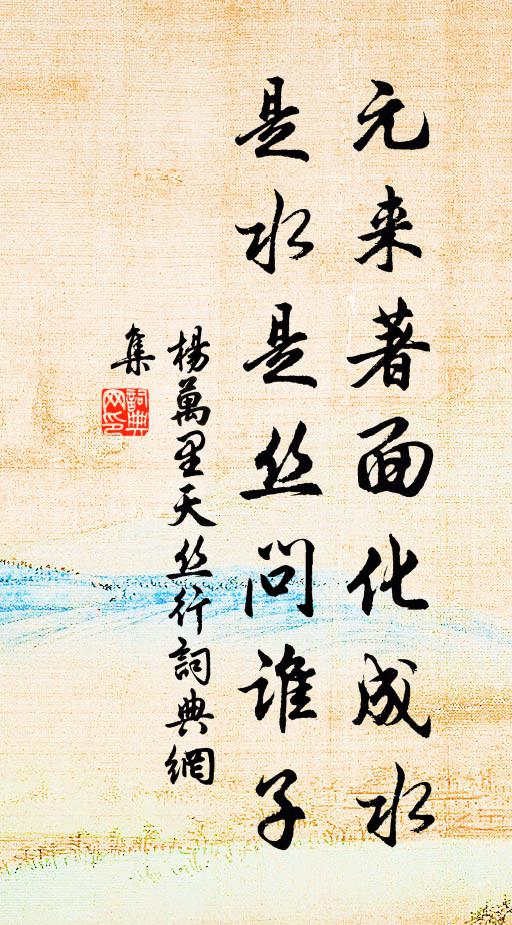 元来著面化成水
是水是丝问谁子
楊萬里天丝行詞典網
集
詞典网印